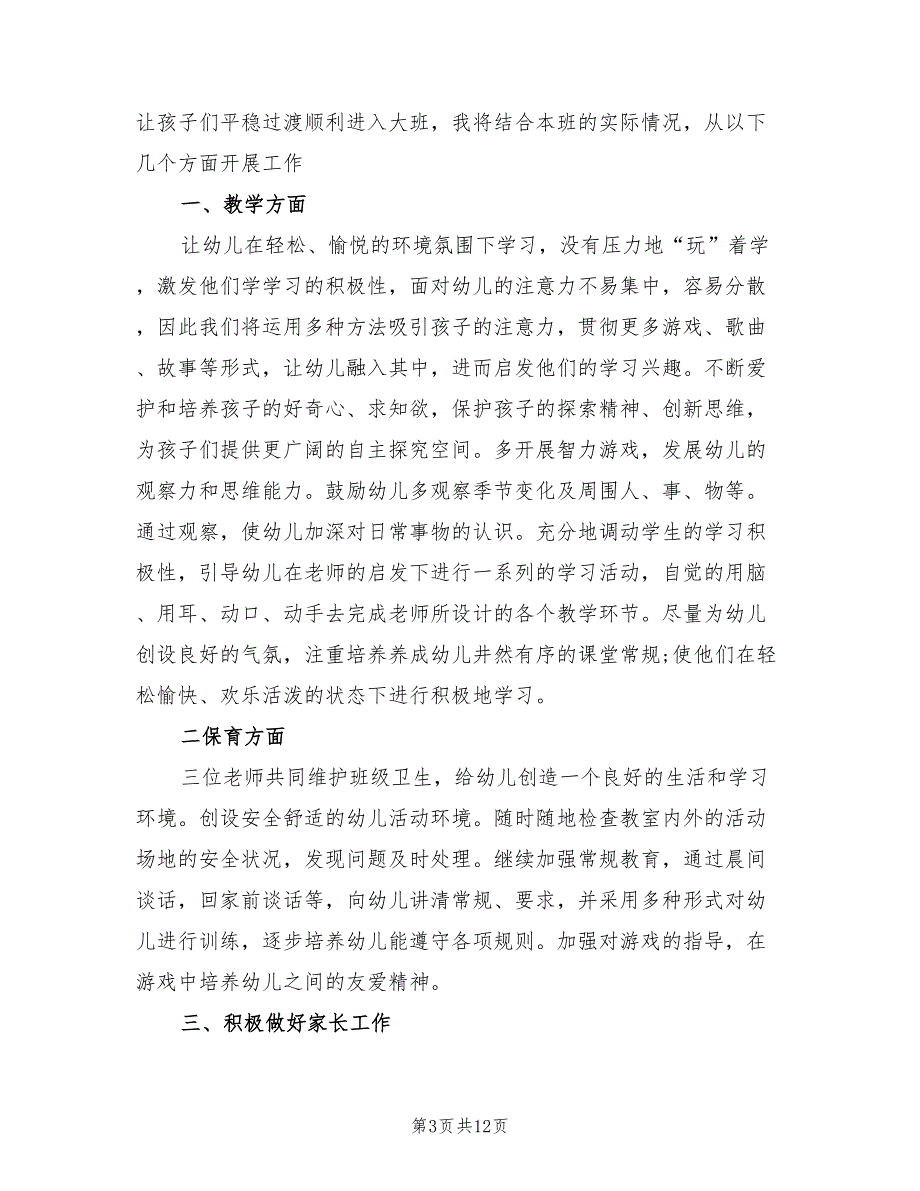 让孩子们平稳过渡顺利进入大班，我将结合本班的实际情况，从以下
几个方面开展工作
一、教学方面
让幼儿在轻松、愉悦的环境氛围下学习，没有压力地“玩”着学
，激发他们学学习的积极性，面对幼儿的注意力不易集中，容易分散
，因此我们将运用多种方法吸引孩子的注意力，贯彻更多游戏、歌曲
、故事等形式，让幼儿融入其中，进而启发他们的学习兴趣。不断爱
护和培养孩子的好奇心、求知欲，保护孩子的探索精神、创新思维，
为孩子们提供更广阔的自主探究空间。多开展智力游戏，发展幼儿的
观察力和思维能力。鼓励幼儿多观察季节变化及周围人、事、物等。
通过观察，使幼儿加深对日常事物的认识。充分地调动学生的学习积
极性，引导幼儿在老师的启发下进行一系列的学习活动，自觉的用脑
、用耳、动口、动手去完成老师所设计的各个教学环节。尽量为幼儿
创设良好的气氛，注重培养养成幼儿井然有序的课堂常规;使他们在轻
松愉快、欢乐活泼的状态下进行积极地学习。
二保育方面
三位老师共同维护班级卫生，给幼儿创造一个良好的生活和学习
环境。创设安全舒适的幼儿活动环境。随时随地检查教室内外的活动
场地的安全状况，发现问题及时处理。继续加强常规教育，通过晨间
谈话，回家前谈话等，向幼儿讲清常规、要求，并采用多种形式对幼
儿进行训练，逐步培养幼儿能遵守各项规则。加强对游戏的指导，在
游戏中培养幼儿之间的友爱精神。
三、积极做好家长工作
第3页共12页